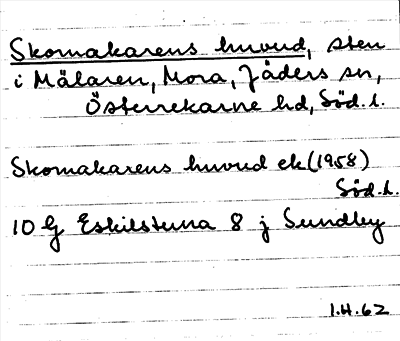 Skomakarens huvud, sten
i Mälaren, Mora, Jäders sn,
Österrekarne hd, Söd. l.
Skomakarens huvud ek (1958)
Söd. l.
10 G Eskilstuna 8 j Sundby
1.H.62